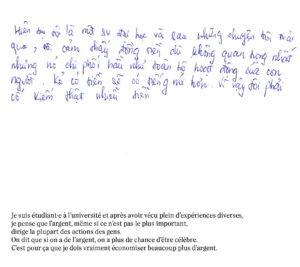 Hiện tôi là một sv đại học và sau những chuyện tôi trải
qua, tôi cảm thấy đồng tiền dù không quan trọng nhất
nhưng nó chi phối hầu như toàn bộ hoạt động của con
người. Kẻ có tiền sẽ có tiếng nói hơn. Vì vậy tôi phải
cố kiếm thật nhiều tiền
Je suis étudiant·e à l'université et après avoir vécu plein d'expériences diverses,
je pense que l'argent, même si ce n'est pas le plus important,
dirige la plupart des actions des gens.
On dit que si on a de l'argent, on a plus de chance d'être célèbre.
C'est pour ça que je dois vraiment économiser beaucoup plus d'argent.